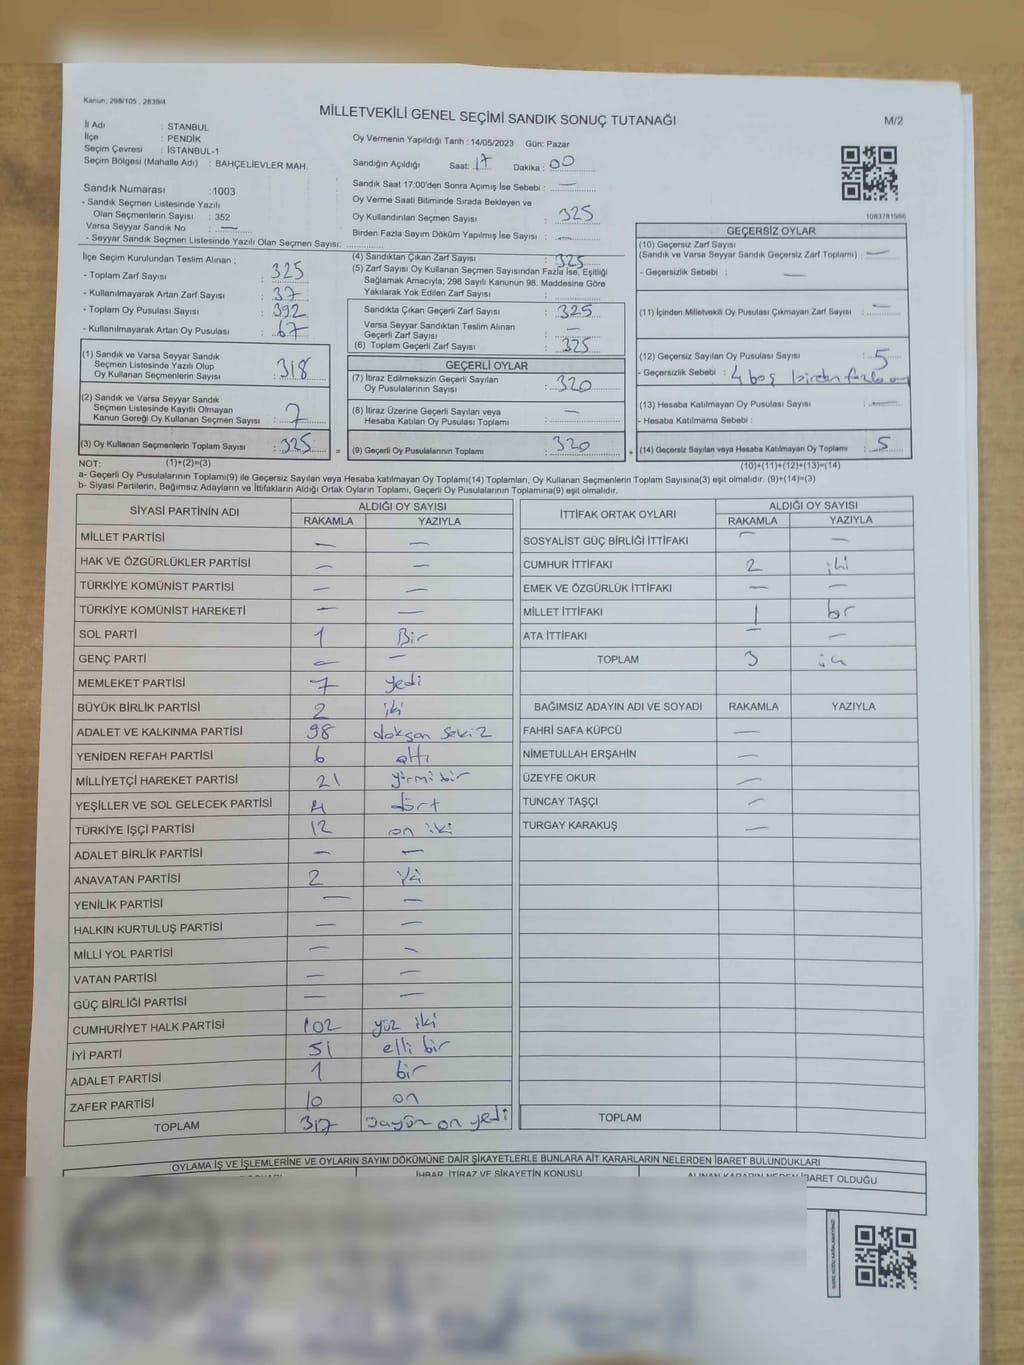 Kanun, 298/105 , 2839/4
MİLLETVEKİLİ GENEL SEÇİMİ SANDIK SONUÇ TUTANAĞI
M/2
İl Adı : STANBUL
İlçe : PENDİK
Seçim Çevresi : İSTANBUL-1
Seçim Bölgesi (Mahalle Adı) : BAHÇELİEVLER MAH.
Sandık Numarası :1003
- Sandık Seçmen Listesinde Yazılı
Olan Seçmenlerin Sayısı : 352
Varsa Seyyar Sandık No : —
- Seyyar Sandık Seçmen Listesinde Yazılı Olan Seçmen Sayısı:
Oy Vermenin Yapıldığı Tarih : 14/05/2023 Gün: Pazar
Sandığın Açıldığı Saat: 17 Dakika : 00
Sandık Saat 17:00'den Sonra Açımış İse Sebebi : —
Oy Verme Saati Bitiminde Sırada Bekleyen ve
Oy Kullandırılan Seçmen Sayısı : 325
Birden Fazla Sayım Döküm Yapılmış İse Sayısı : —
1083781986
İlçe Seçim Kurulundan Teslim Alınan ;
- Toplam Zarf Sayısı : 325
- Kullanılmayarak Artan Zarf Sayısı : 37
- Toplam Oy Pusulası Sayısı : 392
- Kullanılmayarak Artan Oy Pusulası : 67
(1) Sandık ve Varsa Seyyar Sandık
Seçmen Listesinde Yazılı Olup
Oy Kullanan Seçmenlerin Sayısı : 318
(2) Sandık ve Varsa Seyyar Sandık
Seçmen Listesinde Kayıtlı Olmayan
Kanun Gereği Oy Kullanan Seçmen Sayısı : 7
(3) Oy Kullanan Seçmenlerin Toplam Sayısı : 325
(4) Sandıktan Çıkan Zarf Sayısı : 325
(5) Zarf Sayısı Oy Kullanan Seçmen Sayısından Fazla İse, Eşitliği
Sağlamak Amacıyla; 298 Sayılı Kanunun 98. Maddesine Göre
Yakılarak Yok Edilen Zarf Sayısı :
Sandıkta Çıkan Geçerli Zarf Sayısı : 325
Varsa Seyyar Sandıktan Teslim Alınan
Geçerli Zarf Sayısı : —
(6) Toplam Geçerli Zarf Sayısı : 325
GEÇERLİ OYLAR
(7) İtiraz Edilmeksizin Geçerli Sayılan
Oy Pusulalarının Sayısı : 320
(8) İtiraz Üzerine Geçerli Sayılan veya
Hesaba Katılan Oy Pusulası Toplamı : —
= (9) Geçerli Oy Pusulalarının Toplamı : 320
GEÇERSİZ OYLAR
(10) Geçersiz Zarf Sayısı
(Sandık ve Varsa Seyyar Sandık Geçersiz Zarf Toplamı) : —
- Geçersizlik Sebebi : —
(11) İçinden Milletvekili Oy Pusulası Çıkmayan Zarf Sayısı : —
(12) Geçersiz Sayılan Oy Pusulası Sayısı : 5
- Geçersizlik Sebebi : 4 boş birden fazla
(13) Hesaba Katılmayan Oy Pusulası Sayısı : —
- Hesaba Katılmama Sebebi :
+ (14) Geçersiz Sayılan veya Hesaba Katılmayan Oy Toplamı : 5
NOT: (1)+(2)=(3)
(10)+(11)+(12)+(13)=(14)
a- Geçerli Oy Pusulalarının Toplamı(9) ile Geçersiz Sayılan veya Hesaba katılmayan Oy Toplamı(14) Toplamları, Oy Kullanan Seçmenlerin Toplam Sayısına(3) eşit olmalıdır. (9)+(14)=(3)
b- Siyasi Partilerin, Bağımsız Adayların ve İttifakların Aldığı Ortak Oyların Toplamı, Geçerli Oy Pusulalarının Toplamına(9) eşit olmalıdır.
SİYASİ PARTİNİN ADI ALDIĞI OY SAYISI
RAKAMLA YAZIYLA
MİLLET PARTİSİ — —
HAK VE ÖZGÜRLÜKLER PARTİSİ — —
TÜRKİYE KOMÜNİST PARTİSİ — —
TÜRKİYE KOMÜNİST HAREKETİ — —
SOL PARTİ 1 Bir
GENÇ PARTİ — —
MEMLEKET PARTİSİ 7 yedi
BÜYÜK BİRLİK PARTİSİ 2 iki
ADALET VE KALKINMA PARTİSİ 98 doksan sekiz
YENİDEN REFAH PARTİSİ 6 altı
MİLLİYETÇİ HAREKET PARTİSİ 21 yirmi bir
YEŞİLLER VE SOL GELECEK PARTİSİ 4 dört
TÜRKİYE İŞÇİ PARTİSİ 12 on iki
ADALET BİRLİK PARTİSİ — —
ANAVATAN PARTİSİ 2 iki
YENİLİK PARTİSİ — —
HALKIN KURTULUŞ PARTİSİ — —
MİLLİ YOL PARTİSİ — —
VATAN PARTİSİ — —
GÜÇ BİRLİĞİ PARTİSİ — —
CUMHURİYET HALK PARTİSİ 102 yüz iki
İYİ PARTİ 51 elli bir
ADALET PARTİSİ 1 bir
ZAFER PARTİSİ 10 on
TOPLAM 317 üçyüz on yedi
İTTİFAK ORTAK OYLARI ALDIĞI OY SAYISI
RAKAMLA YAZIYLA
SOSYALİST GÜÇ BİRLİĞİ İTTİFAKI — —
CUMHUR İTTİFAKI 2 iki
EMEK VE ÖZGÜRLÜK İTTİFAKI — —
MİLLET İTTİFAKI 1 bir
ATA İTTİFAKI — —
TOPLAM 3 üç
BAĞIMSIZ ADAYIN ADI VE SOYADI RAKAMLA YAZIYLA
FAHRİ SAFA KÜPCÜ —
NİMETULLAH ERŞAHİN —
ÜZEYFE OKUR —
TUNCAY TAŞÇI —
TURGAY KARAKUŞ —
TOPLAM
OYLAMA İŞ VE İŞLEMLERİNE VE OYLARIN SAYIM DÖKÜMÜNE DAİR ŞİKAYETLERLE BUNLARA AİT KARARLARIN NELERDEN İBARET BULUNDUKLARI
İHBAR, İTİRAZ VE ŞİKAYETİN KONUSU
ALINAN KARARIN NEDEN İBARET OLDUĞU